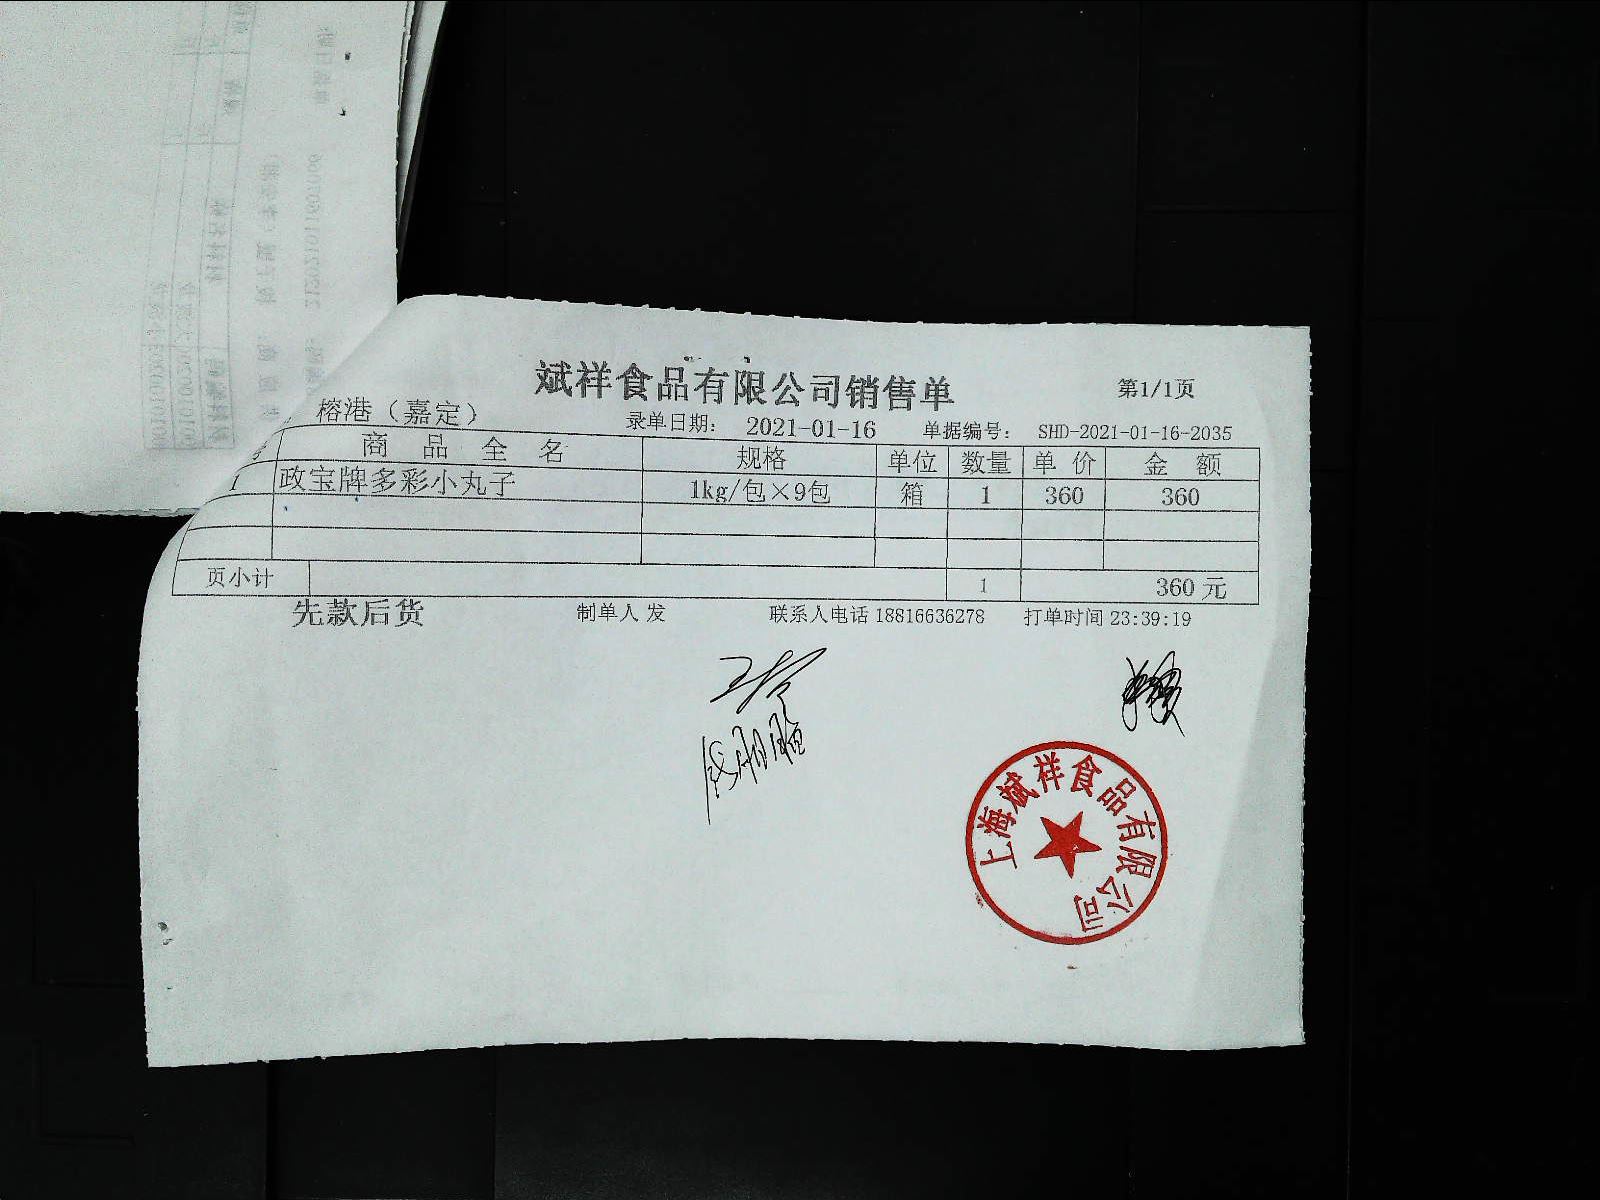 斌祥食品有限公司销售单
第1/1页
榕港（嘉定） 录单日期： 2021-01-16 单据编号： SHD-2021-01-16-2035
商 品 全 名 规格 单位 数量 单 价 金 额
1 政宝牌多彩小丸子 1kg/包×9包 箱 1 360 360
页小计 1 360 元
先款后货 制单人 发 联系人电话 18816636278 打单时间 23:39:19
上海斌祥食品有限公司